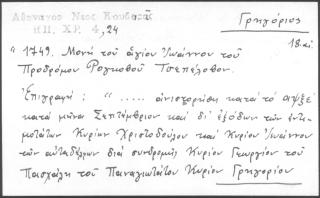 Γρηγόριος
Αθωνικός Νέος Κουβαράς
ΗΠ. ΧΡ. 4, 24
18. αι.
"1749. Μονή τοῦ ἁγίου Ἰωάννου τοῦ
Προδρόμου Ρογκοβοῦ Τσεπελόβου.
Ἐπιγραφή: "..... ἀνιστορήθη κατά τό αψμξ
κατά μῆνα Σεπτέμβριον καί δι' ἐξόδων τῶν ἐντι-
μοτάτων Κυρίων Χριστοδούλου καί Κυρίου Ἰωάννου
τῶν αὐταδέλφων διά συνδρομῆς Κυρίου Γεωργίου τοῦ
Πασχάλη τοῦ Παναγιωτάτου Κυρίου Γρηγορίου